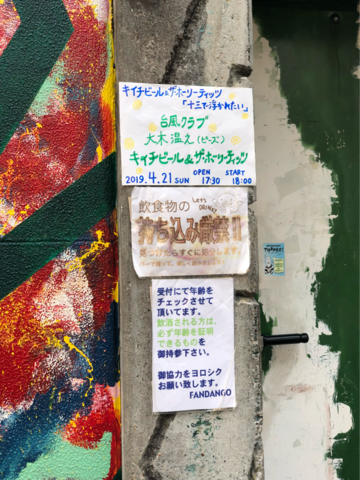 キイチビール&ザ・ホーリーティッツ
「十三で浮かれたい」
台風クラブ
大木温之(ピーズ)
キイチビール&ザ・ホーリーティッツ
OPEN START
2019.4.21 SUN 17:30 18:00
飲食物の Let's
DRINK!!
持ち込み厳禁!!
見つけたらすぐに処分します。
受付にて年齢を
チェックさせて
頂いてます。
飲酒される方は、
必ず年齢を証明
できるものを
御持参下さい。
御協力をヨロシク
お願い致します。
FANDANGO